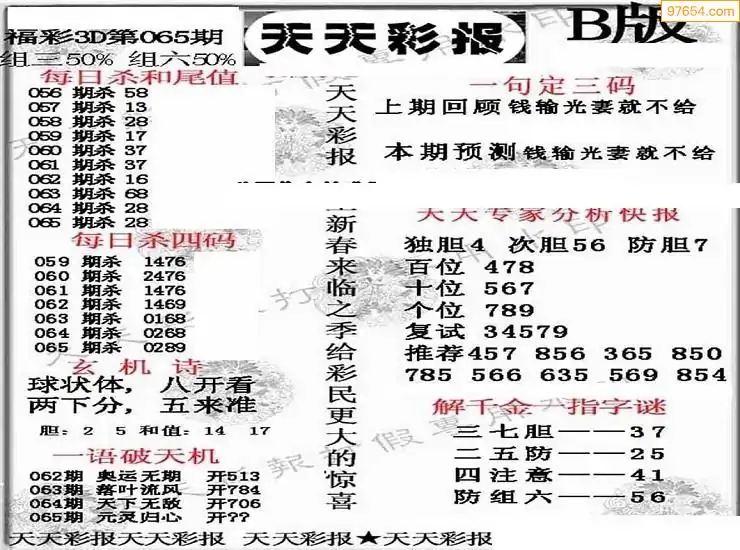 97654.com
福彩3D第065期
天天彩报
B版
组三50% 组六50%
每日杀和尾值
056 期杀 58
057 期杀 13
058 期杀 28
059 期杀 17
060 期杀 37
061 期杀 37
062 期杀 16
063 期杀 68
064 期杀 28
065 期杀 28
每日杀四码
059 期杀 1476
060 期杀 2476
061 期杀 1476
062 期杀 1469
063 期杀 0168
064 期杀 0268
065 期杀 0289
玄机诗
球状体,八开看
两下分,五来准
胆:2 5 和值:14 17
一语破天机
062期 奥运无期 开513
063期 落叶流风 开784
064期 天下无敌 开706
065期 元灵归心 开??
天天彩报
新春来临之季给彩民更大的惊喜
一句定三码
上期回顾钱输光妻就不给
本期预测钱输光妻就不给
天天专家分析快报
独胆4 次胆56 防胆7
百位 478
十位 567
个位 789
复试 34579
推荐457 856 365 850
785 566 635 569 854
解千金一指字谜
三七胆——37
二五防——25
四注意——41
防组六——56
天天彩报天天彩报 天天彩报★天天彩报